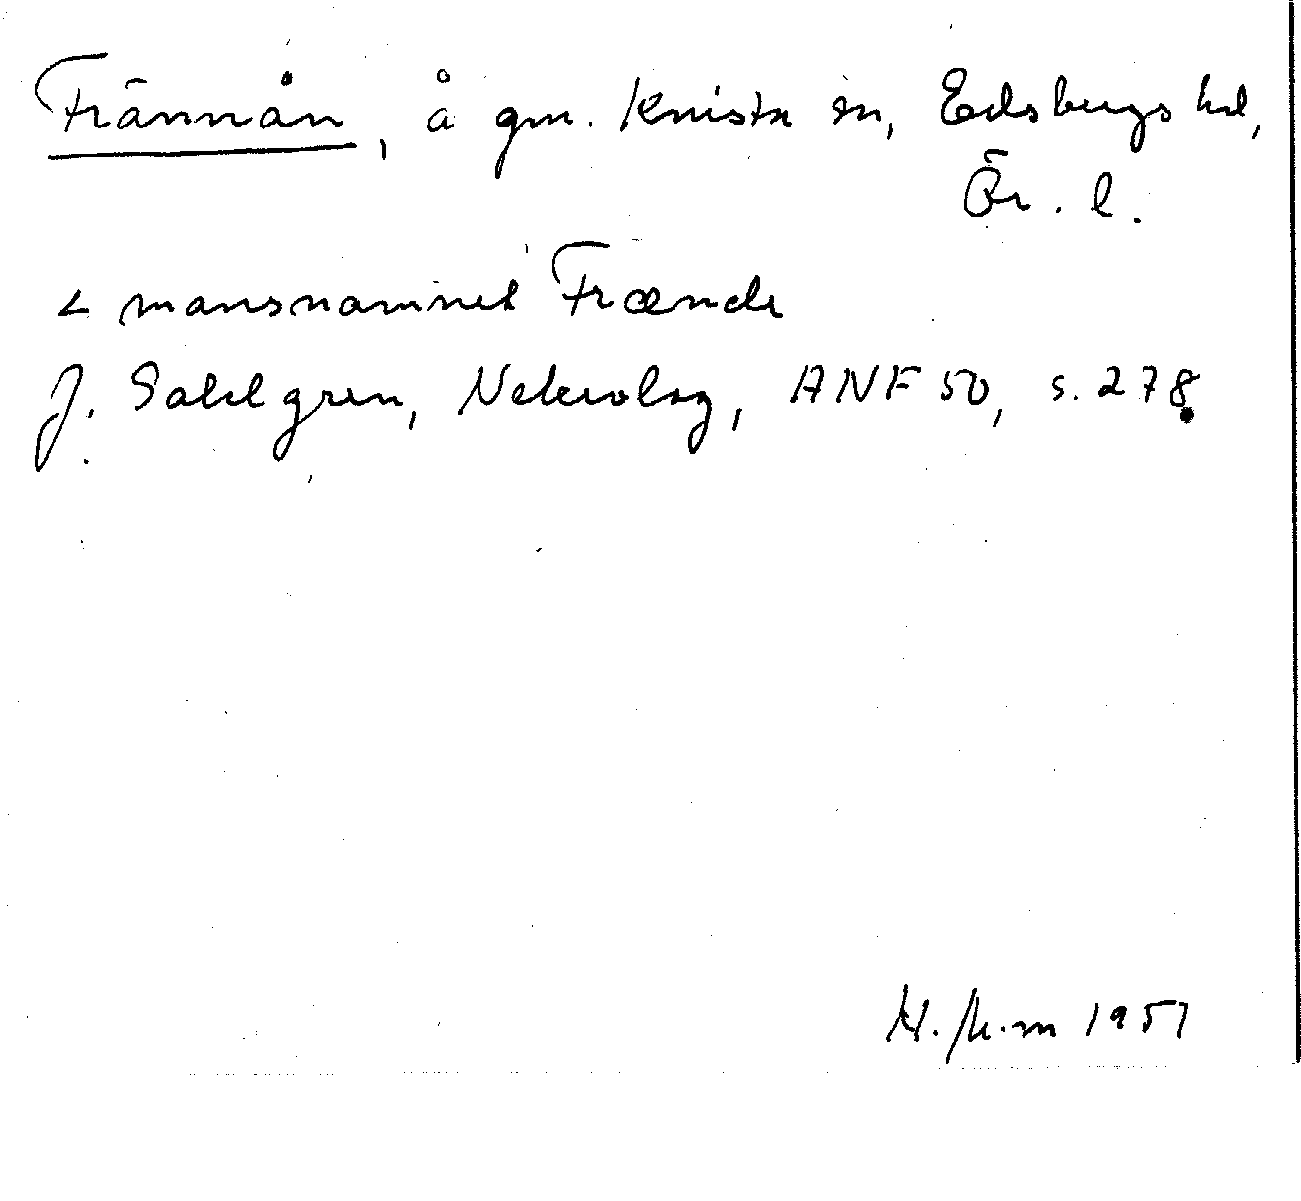 Frännån, å gm. Knista sn, Edsbergs hd,
Ör. l.
< mansnamnet Frænde
J. Sahlgren, Nekrolog, ANF 50, s. 278.
1951